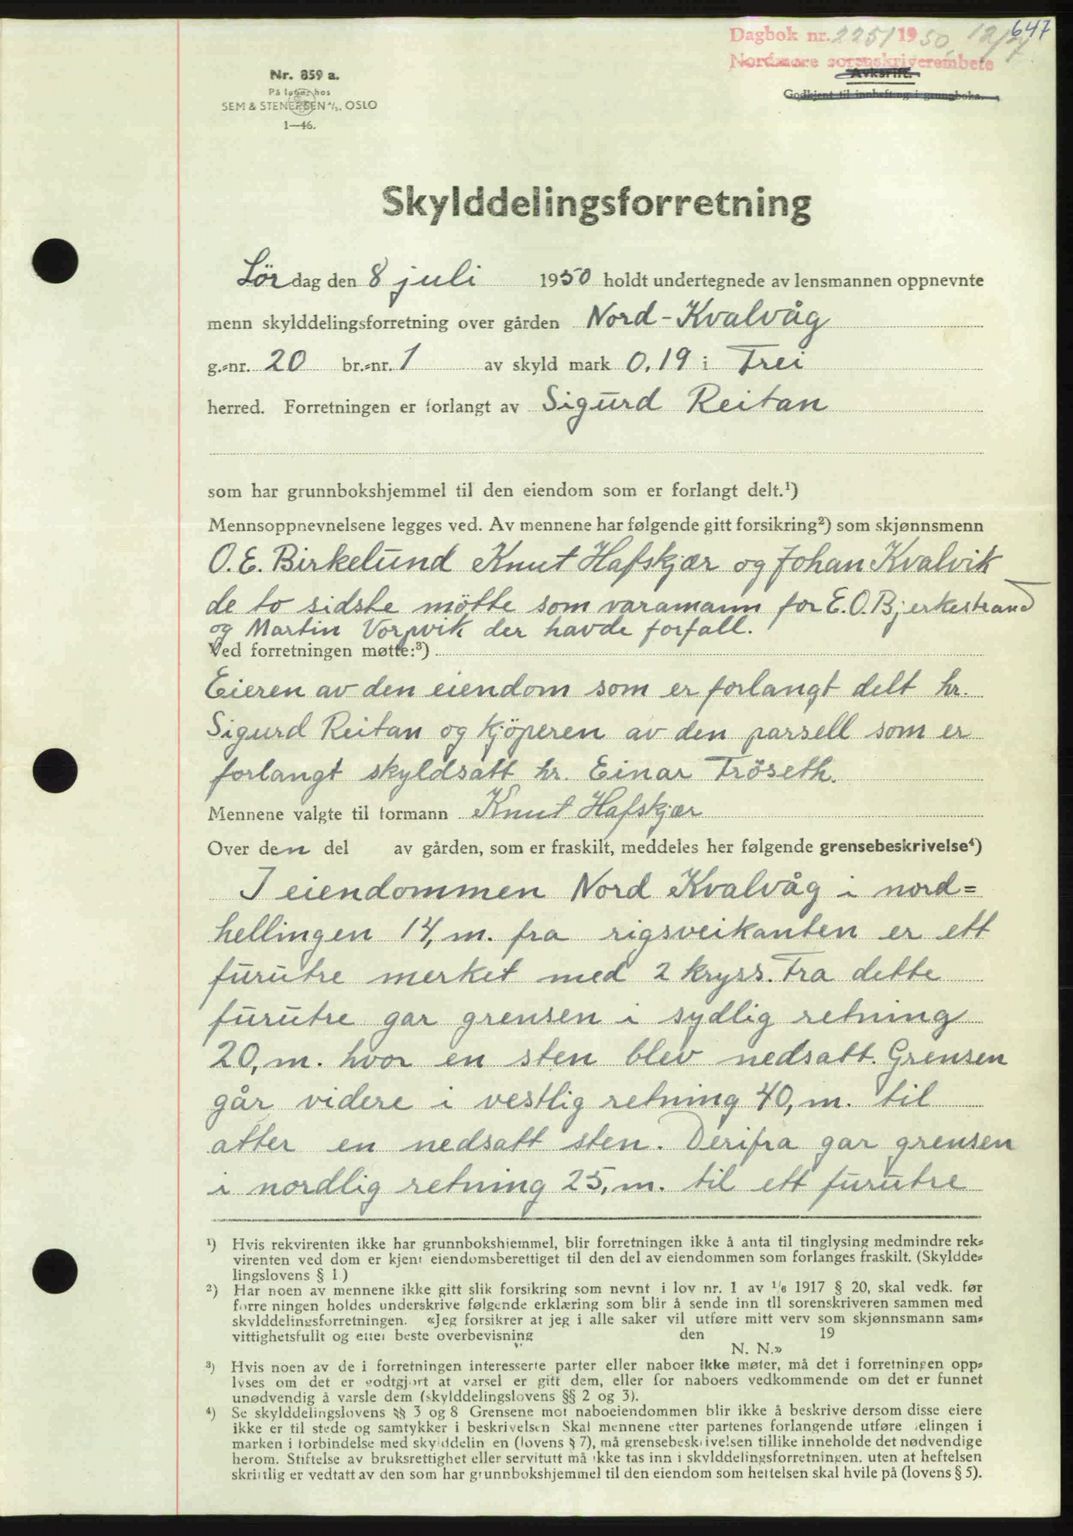 647
Dagbok nr. 2251 1950 12/7
Nordmøre sorenskriverembete
Avskrift.
Godkjent til innhefting i grunnboka.
Nr. 859 a.
På lager hos
SEM & STENERSEN A/S, OSLO
1—46.
Skylddelingsforretning
Lördag den 8 juli 1950 holdt undertegnede av lensmannen oppnevnte
menn skylddelingsforretning over gården Nord-Kvalvåg
g.-nr. 20 br.-nr. 1 av skyld mark 0,19 i Frei
herred. Forretningen er forlangt av Sigurd Reitan
som har grunnbokshjemmel til den eiendom som er forlangt delt.¹)
Mennsoppnevnelsene legges ved. Av mennene har følgende gitt forsikring²) som skjønnsmenn
O.E. Birkelund Knut Hafskjær og Johan Kvalvik
de to sidste mötte som varamann for E.O. Bjerkestrand
og Martin Vorpvik der havde forfall.
Ved forretningen møtte:³)
Eieren av den eiendom som er forlangt delt hr.
Sigurd Reitan og kjöperen av den parsell som er
forlangt skyldsatt hr. Einar Tröseth.
Mennene valgte til formann Knut Hafskjær
Over den del av gården, som er fraskilt, meddeles her følgende grensebeskrivelse⁴)
I eiendommen Nord Kvalvåg i nord=
hellingen 14, m. fra rigsveikanten er ett
furutre merket med 2 kryss. Fra dette
furutre gar grensen i sydlig retning
20, m. hvor en sten blev nedsatt. Grensen
går videre i vestlig retning 40, m. til
atter en nedsatt sten. Derifra gar grensen
i nordlig retning 25, m. til ett furutre
¹) Hvis rekvirenten ikke har grunnbokshjemmel, blir forretningen ikke å anta til tinglysing medmindre rek-
virenten ved dom er kjent eiendomsberettiget til den del av eiendommen som forlanges fraskilt. (Skyldde-
lingslovens § 1.)
²) Har noen av mennene ikke gitt slik forsikring som nevnt i lov nr. 1 av 1/6 1917 § 20, skal vedk. før
forretningen holdes underskrive følgende erklæring som blir å sende inn til sorenskriveren sammen med
skylddelingsforretningen. «Jeg forsikrer at jeg i alle saker vil utføre mitt verv som skjønnsmann sam-
vittighetsfullt og etter beste overbevisning
den 19
N. N.»
³) Hvis noen av de i forretningen interesserte parter eller naboer ikke møter, må det i forretningen opp-
lyses om det er godtgjort at varsel er gitt dem, eller for naboers vedkommende om det er funnet
unødvendig å varsle dem (skylddelingslovens §§ 2 og 3).
⁴) Se skylddelingslovens §§ 3 og 8 Grensene mot naboeiendommen blir ikke å beskrive dersom disse eiere
ikke er til stede og samtykker i beskrivelsen Skal mennene etter partenes forlangende utføre delingen i
marken i forbindelse med skylddelingen (lovens § 7), må grensebeskrivelsen tillike inneholde det nødvendige
herom. Stiftelse av bruksrettighet eller servitutt må ikke tas inn i skylddelingsforretningen, uten at heftelsen
skriftlig er vedtatt av den som har grunnbokshjemmel til den eiendom som heftelsen skal hvile på (lovens § 5).